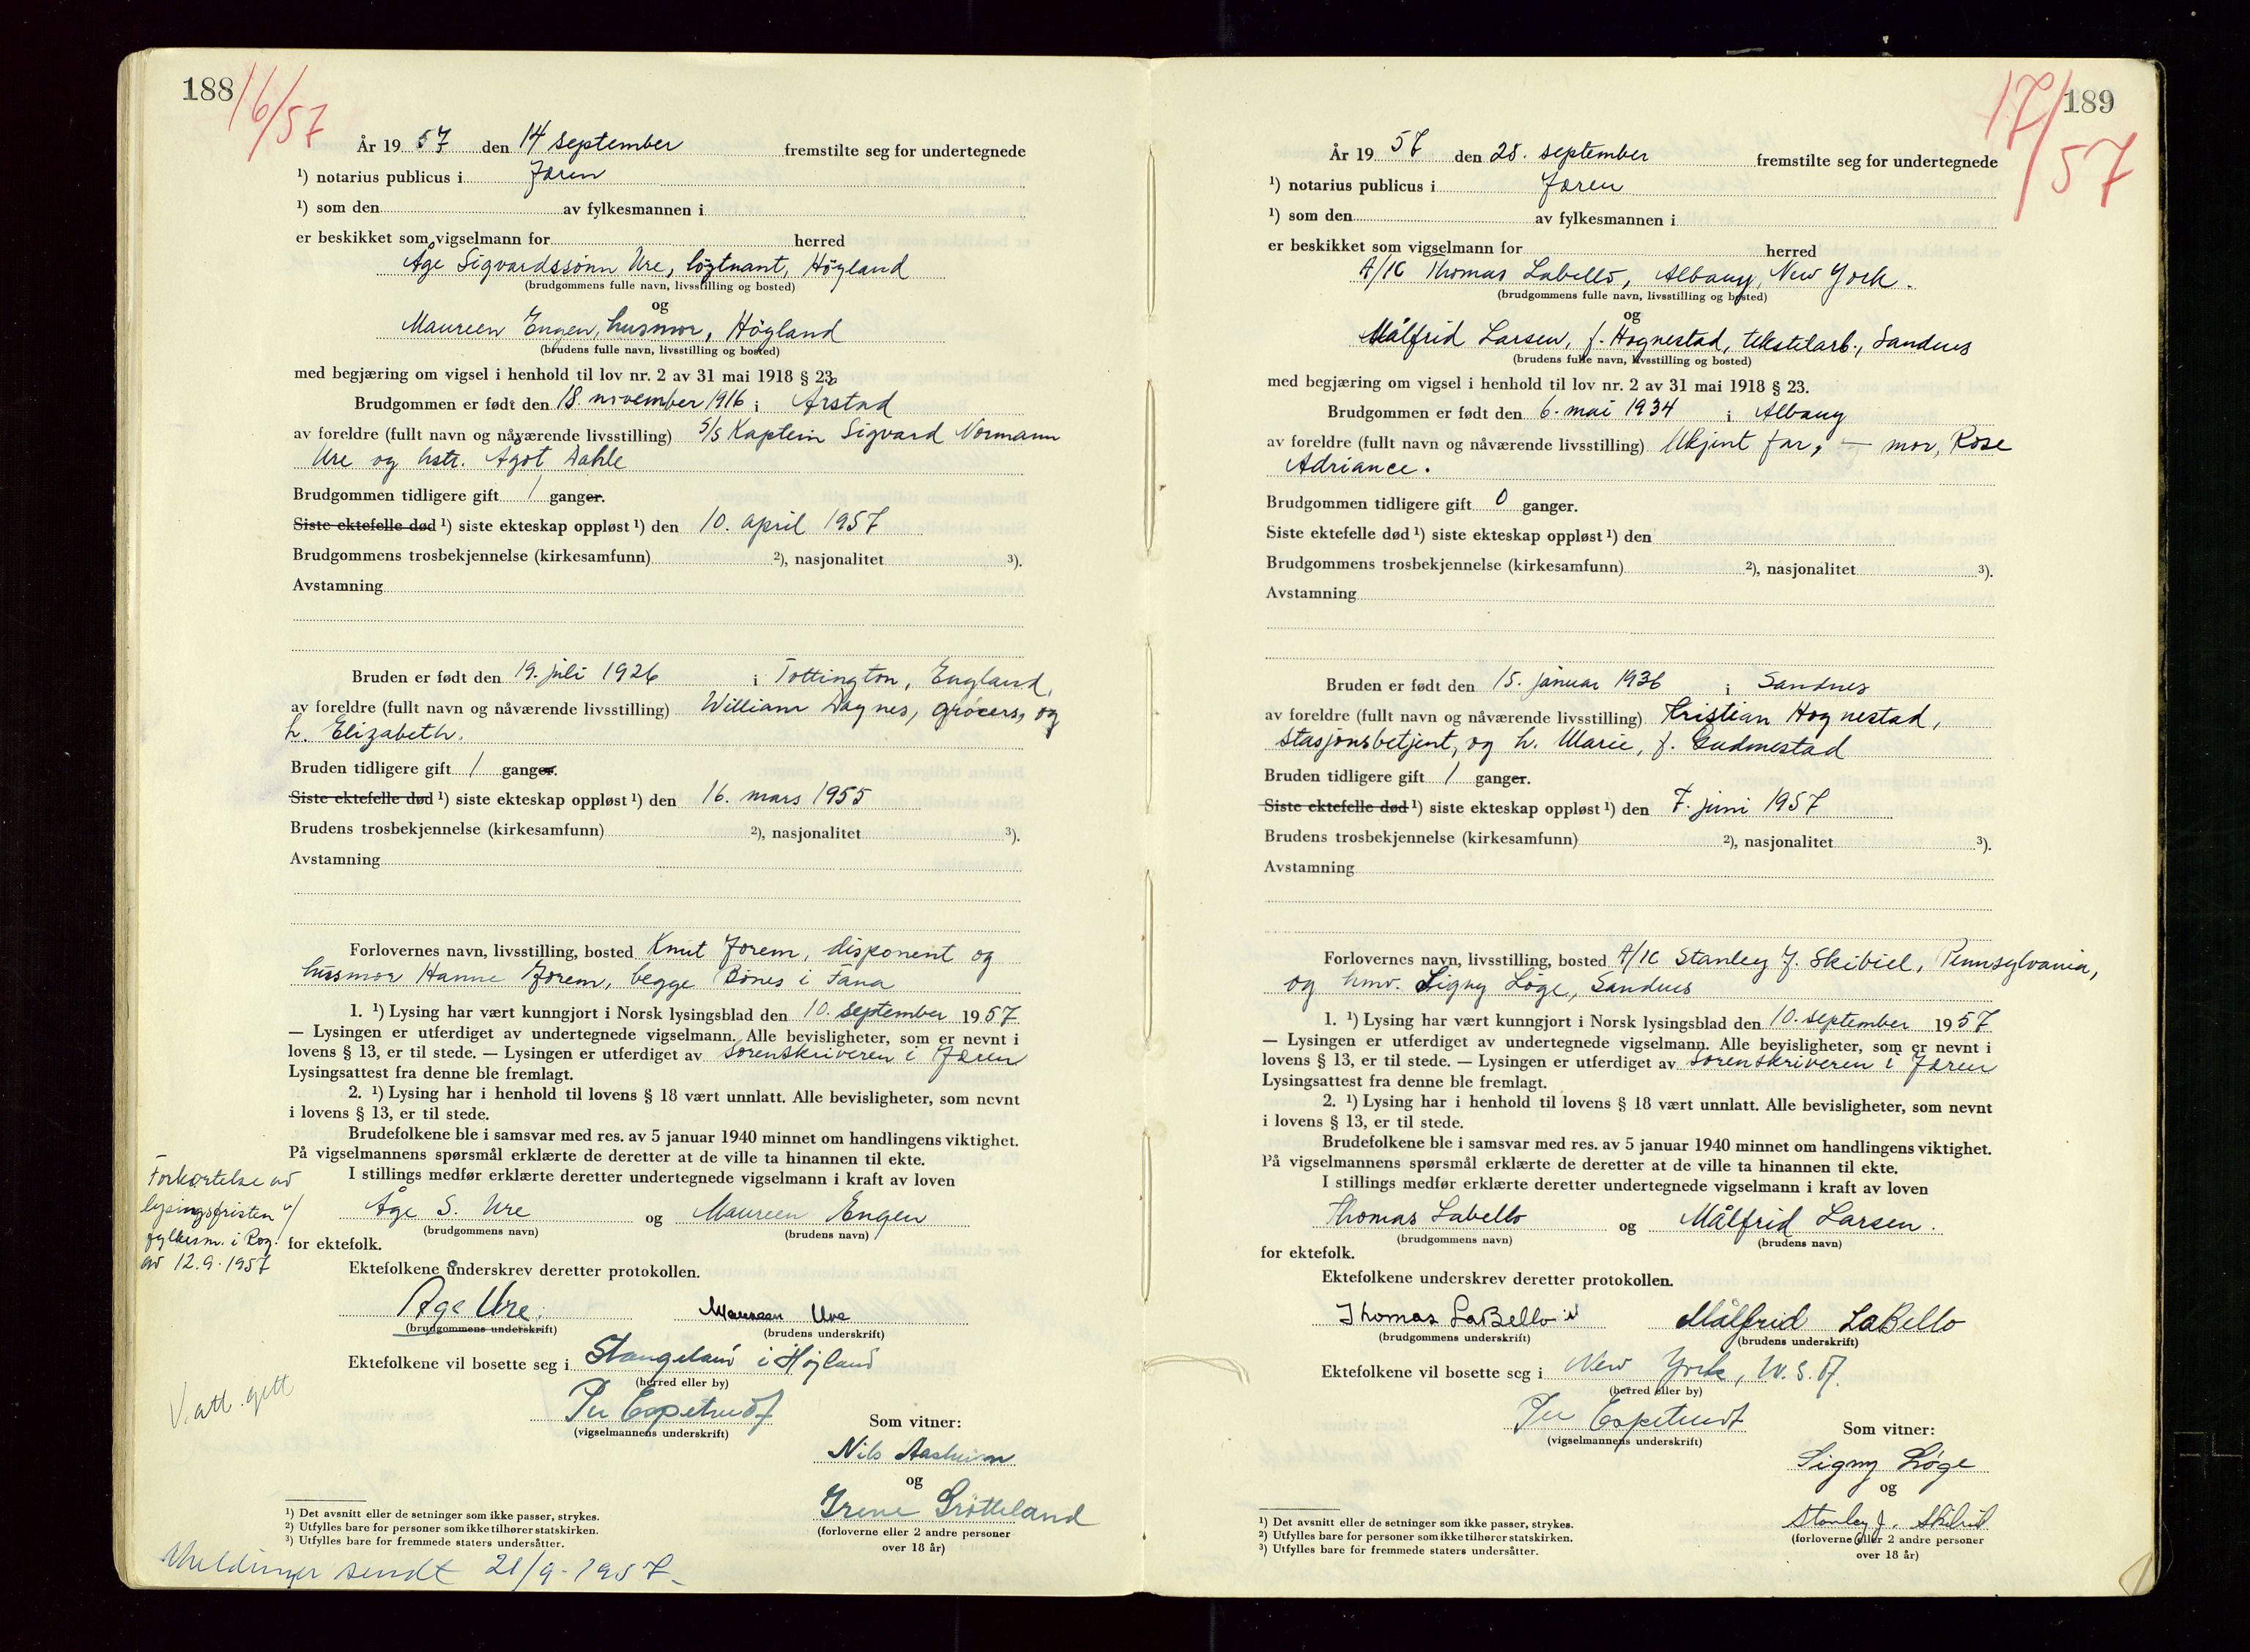 188
16/57
År 19 57 den 14 september fremstilte seg for undertegnede
¹) notarius publicus i Jæren
¹) som den av fylkesmannen i
er beskikket som vigselmann for herred
Åge Sigvardssønn Ure, löytnant, Høyland
(brudgommens fulle navn, livsstilling og bosted)
og
Maureen Engen, husmor, Høyland
(brudens fulle navn, livsstilling og bosted)
med begjæring om vigsel i henhold til lov nr. 2 av 31 mai 1918 § 23.
Brudgommen er født den 18. november 1916 i Årstad
av foreldre (fullt navn og nåværende livsstilling) S/S Kaptein Sigvard Normann
Ure og hstr. Ågot Dahle
Brudgommen tidligere gift 1 ganger.
Siste ektefelle død ¹) siste ekteskap oppløst ¹) den 10. april 1957
Brudgommens trosbekjennelse (kirkesamfunn) ²), nasjonalitet ³).
Avstamning
Bruden er født den 19. juli 1926 i Tottington, England,
av foreldre (fullt navn og nåværende livsstilling) William Dagnes, grocers, og
h. Elizabeth.
Bruden tidligere gift 1 ganger.
Siste ektefelle død ¹) siste ekteskap oppløst ¹) den 16. mars 1955
Brudens trosbekjennelse (kirkesamfunn) ²), nasjonalitet ³).
Avstamning
Forlovernes navn, livsstilling, bosted Knut Jorem, disponent og
husmor Hanne Jorem, begge Bönes i Fana
1. ¹) Lysing har vært kunngjort i Norsk lysingsblad den 10. september 1957
— Lysingen er utferdiget av undertegnede vigselmann. Alle bevisligheter, som er nevnt i
lovens § 13, er til stede. — Lysingen er utferdiget av sorenskriveren i Jæren
Lysingsattest fra denne ble fremlagt.
2. ¹) Lysing har i henhold til lovens § 18 vært unnlatt. Alle bevisligheter, som nevnt
i lovens § 13, er til stede.
Brudefolkene ble i samsvar med res. av 5 januar 1940 minnet om handlingens viktighet.
På vigselmannens spørsmål erklærte de deretter at de ville ta hinannen til ekte.
I stillings medfør erklærte deretter undertegnede vigselmann i kraft av loven
Forkortelse av
lysingsfristen v/
fylkesm. i Rog.
av 12.9.1957
Åge S. Ure og Maureen Engen
(brudgommens navn) (brudens navn)
for ektefolk.
Ektefolkene underskrev deretter protokollen.
Åge Ure. Maureen Ure
(brudgommens underskrift) (brudens underskrift)
Ektefolkene vil bosette seg i Stangeland i Høyland
(herred eller by)
V. att. gitt
Per Espetvedt
(vigselmannens underskrift)
Som vitner:
Nils Aasheim
og
Irene Grötteland
(forloverne eller 2 andre personer
over 18 år)
¹) Det avsnitt eller de setninger som ikke passer, strykes.
²) Utfylles bare for personer som ikke tilhører statskirken.
³) Utfylles bare for fremmede staters undersåtter.
Meldinger sendt 21/9-1957.
189
17/57
År 19 57 den 28. september fremstilte seg for undertegnede
¹) notarius publicus i Jæren
¹) som den av fylkesmannen i
er beskikket som vigselmann for herred
A/1C Thomas Labello, Albany, New York.
(brudgommens fulle navn, livsstilling og bosted)
og
Målfrid Larsen, f. Hognestad, tekstilarb., Sandnes
(brudens fulle navn, livsstilling og bosted)
med begjæring om vigsel i henhold til lov nr. 2 av 31 mai 1918 § 23.
Brudgommen er født den 6. mai 1934 i Albany
av foreldre (fullt navn og nåværende livsstilling) Ukjent far, — mor, Rose
Adriance.
Brudgommen tidligere gift 0 ganger.
Siste ektefelle død ¹) siste ekteskap oppløst ¹) den
Brudgommens trosbekjennelse (kirkesamfunn) ²), nasjonalitet ³).
Avstamning
Bruden er født den 15. januar 1936 i Sandnes
av foreldre (fullt navn og nåværende livsstilling) Kristian Hognestad,
stasjonsbetjent, og h. Marie, f. Gudmestad
Bruden tidligere gift 1 ganger.
Siste ektefelle død ¹) siste ekteskap oppløst ¹) den 7. juni 1957
Brudens trosbekjennelse (kirkesamfunn) ²), nasjonalitet ³).
Avstamning
Forlovernes navn, livsstilling, bosted A/1C Stanley J. Skibiel, Pennsylvania,
og hmv. Signy Löge, Sandnes
1. ¹) Lysing har vært kunngjort i Norsk lysingsblad den 10. september 1957
— Lysingen er utferdiget av undertegnede vigselmann. Alle bevisligheter, som er nevnt i
lovens § 13, er til stede. — Lysingen er utferdiget av sorenskriveren i Jæren
Lysingsattest fra denne ble fremlagt.
2. ¹) Lysing har i henhold til lovens § 18 vært unnlatt. Alle bevisligheter, som nevnt
i lovens § 13, er til stede.
Brudefolkene ble i samsvar med res. av 5 januar 1940 minnet om handlingens viktighet.
På vigselmannens spørsmål erklærte de deretter at de ville ta hinannen til ekte.
I stillings medfør erklærte deretter undertegnede vigselmann i kraft av loven
Thomas Labello og Målfrid Larsen.
(brudgommens navn) (brudens navn)
for ektefolk.
Ektefolkene underskrev deretter protokollen.
Thomas LaBello Målfrid LaBello
(brudgommens underskrift) (brudens underskrift)
Ektefolkene vil bosette seg i New York, U.S.A.
(herred eller by)
Per Espetvedt
(vigselmannens underskrift)
Som vitner:
Signy Löge
og
Stanley J. Skibiel
(forloverne eller 2 andre personer
over 18 år)
¹) Det avsnitt eller de setninger som ikke passer, strykes.
²) Utfylles bare for personer som ikke tilhører statskirken.
³) Utfylles bare for fremmede staters undersåtter.